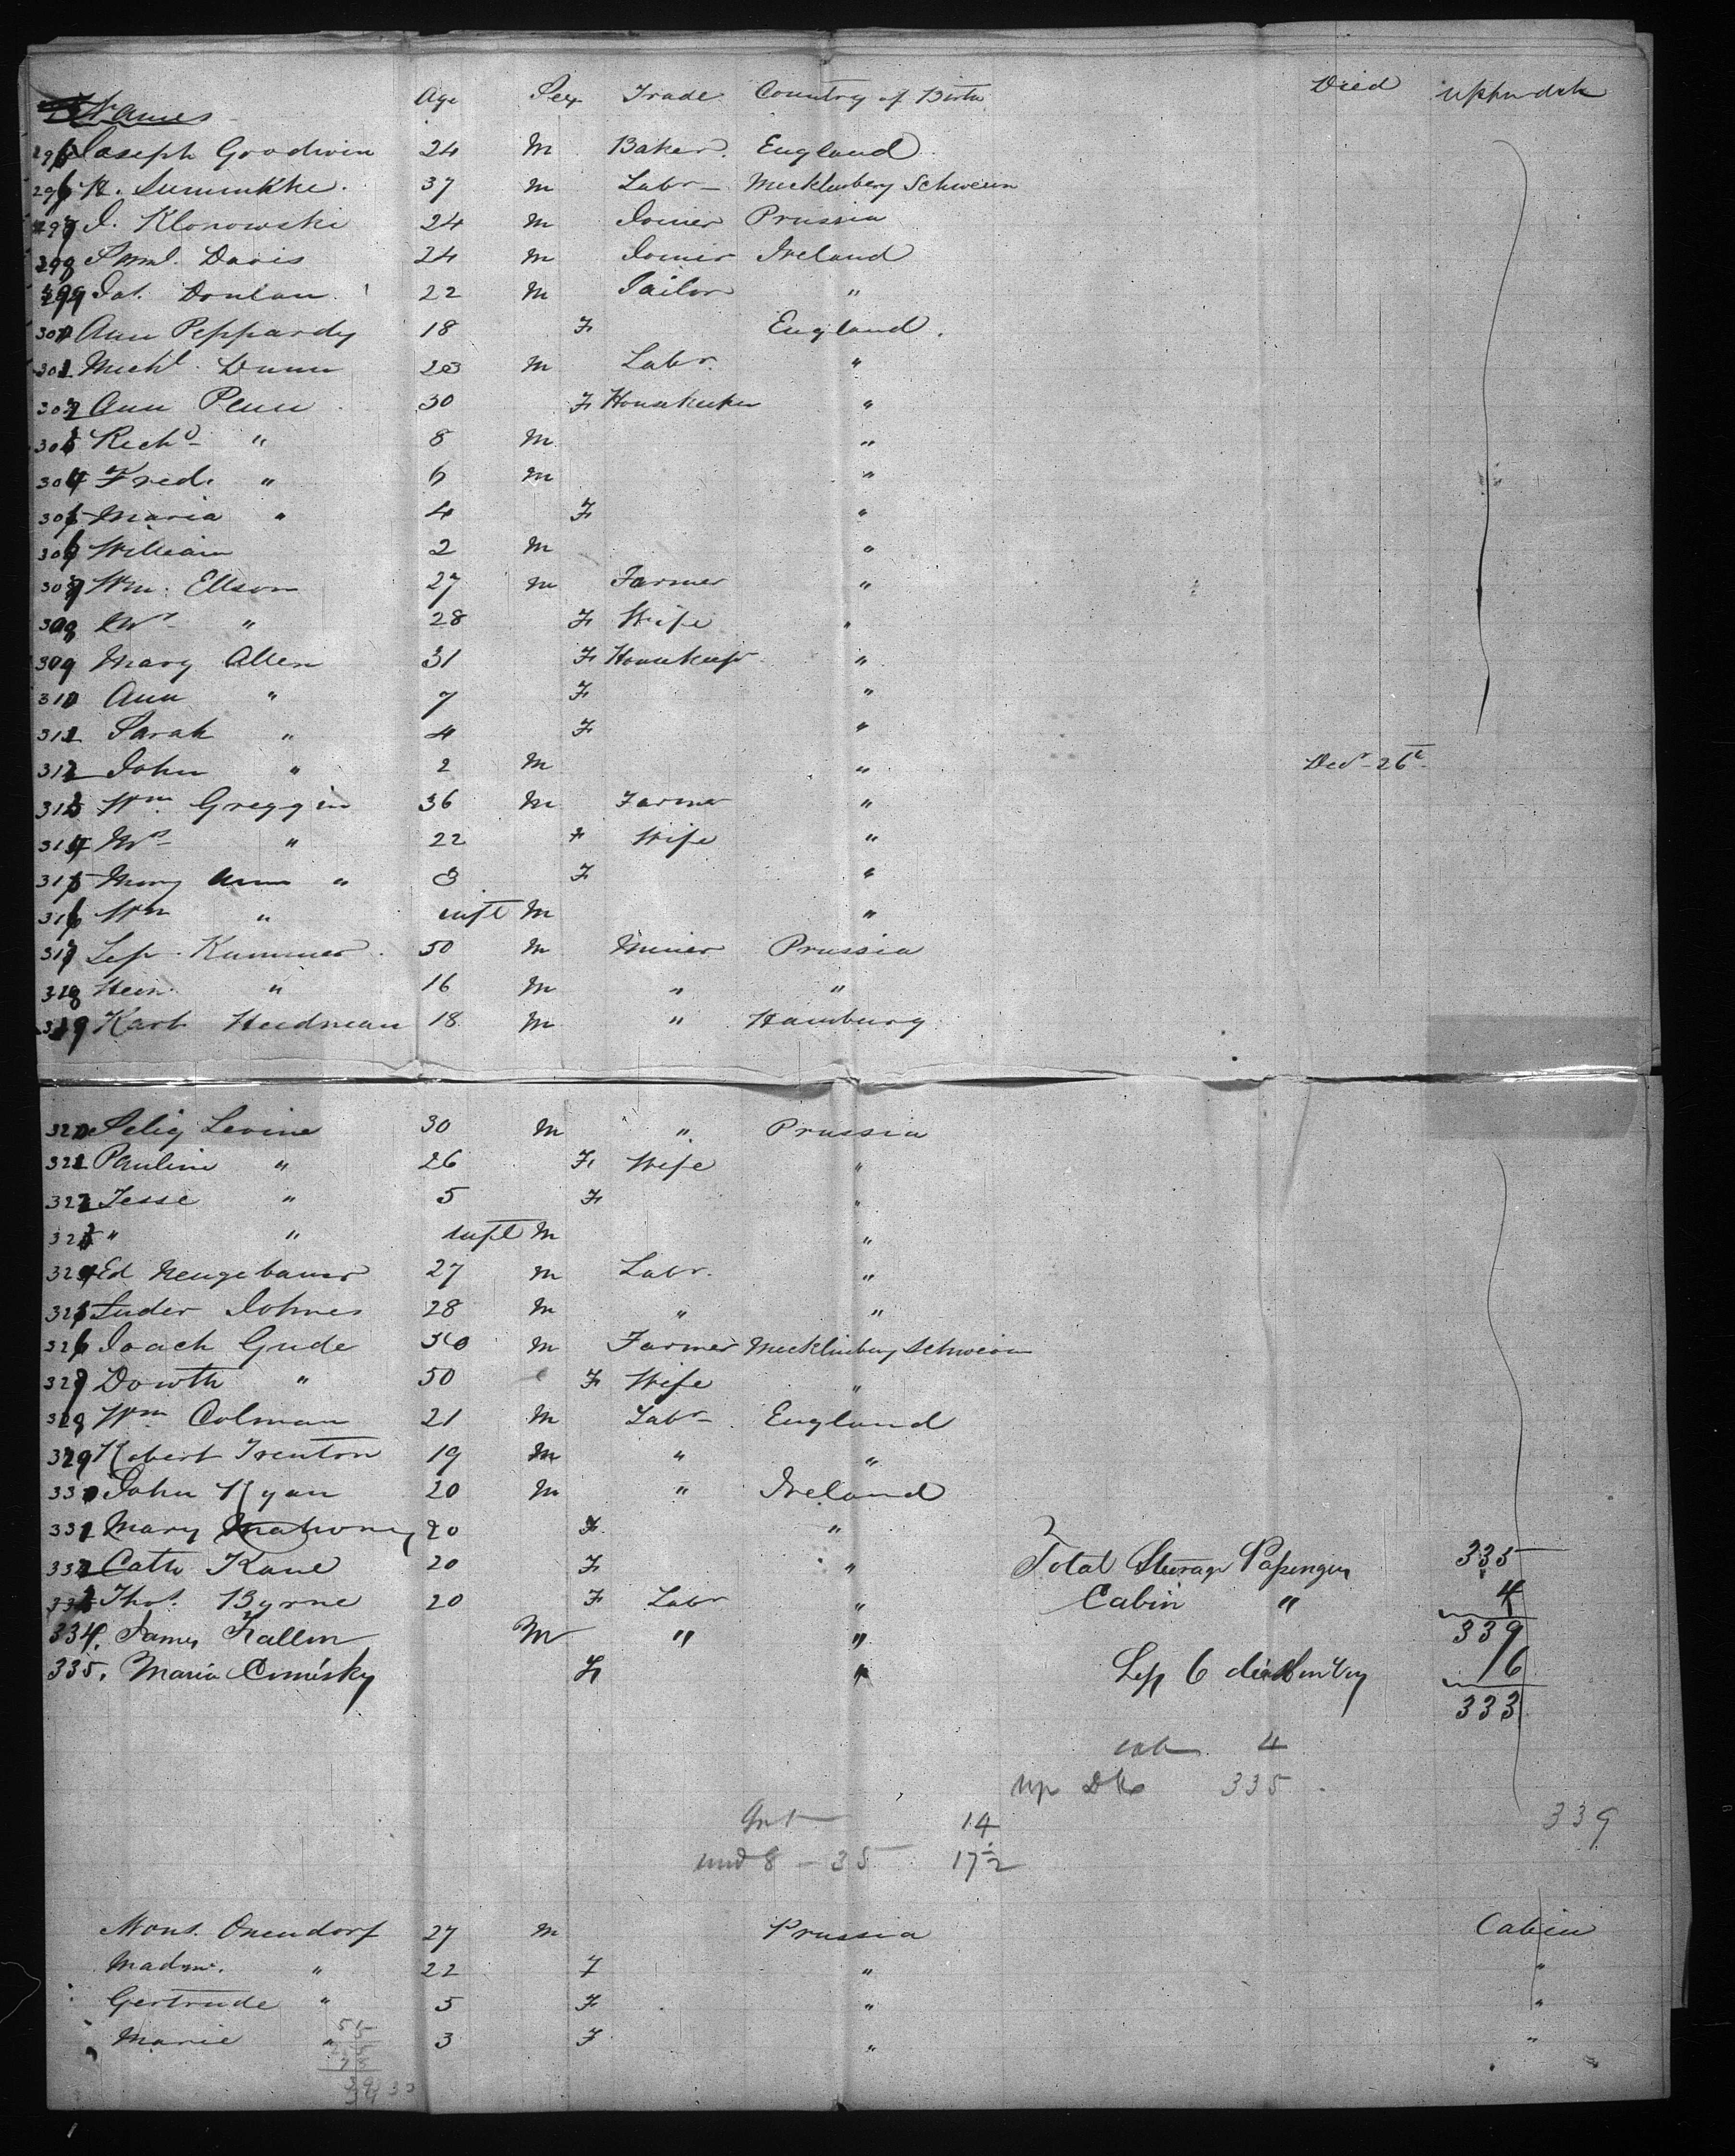 Names Age Sex Trade Country of Birth Died Upper deck
295 Joseph Goodwin 24 M Baker. England
296 H. Summkhe. 37 M Labr Mecklenberg Schwerin
297 J. Klonowski 24 M Joiner Prussia
298 Saml. Davis 24 M Joiner Ireland
299 Pat. Donlan 22 M Tailor "
300 Ann Peppardy 18 F England.
301 Michl. Dunn 23 M Labr. "
302 Ann Penn 30 F Housekeeker "
303 Richd " 8 M "
304 Fred. " 6 M "
305 Maria " 4 F "
306 William 2 M "
307 Wm. Ellson 27 M Farmer "
308 Mrs " 28 F Wife "
309 Mary Allen 31 F Housekeepr "
310 Ann " 7 F "
311 Sarah " 4 F "
312 John " 2 M " Decr 26th
313 Wm Greggin 36 M Farmer "
314 Mrs " 22 F Wife "
315 Mary Ann " 3 F "
316 Wm " inft M "
317 Lep. Kummer 50 M Miner Prussia
318 Hein. " 16 M " "
319 Karl Heidman 18 M " Hamburg
320 Selig Levine 30 M " Prussia
321 Pauline " 26 F Wife "
322 Jesse " 5 F "
323 " " inft M "
324 Ed Neugebauer 27 M Labr. "
325 Luder Johnes 28 M " "
326 Joach Gude 30 M Farmer Mecklinburg Schwerin
327 Dowth " 50 F Wife "
328 Wm Colman 21 M Labr England
329 Robert Trenton 19 M " "
330 John Ryan 20 M " Ireland
331 Mary Mahoney 20 F "
332 Cath Kane 20 F " Total Steerage Passengers 335
333 Thos. Byrne 20 F Labr " Cabin " 4
334. James Fallon M " " 339
335. Maria Comisky F " Less 6 died 6
333
cab 4
up Dk 335
Inft 14 339
und 8 - 35 17½
Mons. Onendorf 27 M Prussia Cabin
Madm. " 22 F " "
Gertrude " 5 F " "
Marie " 3 F " "